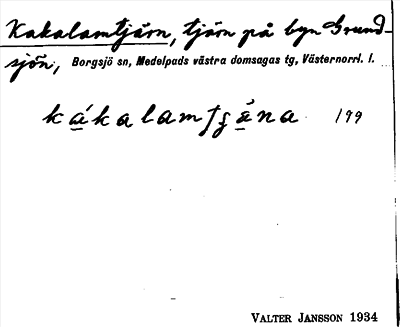 Kakalamtjärn, tjärn på byn Grund-
sjön, Borgsjö sn, Medelpads västra domsagas tg, Västernorrl. l.
kákalamtʃäna 199
VALTER JANSSON 1934